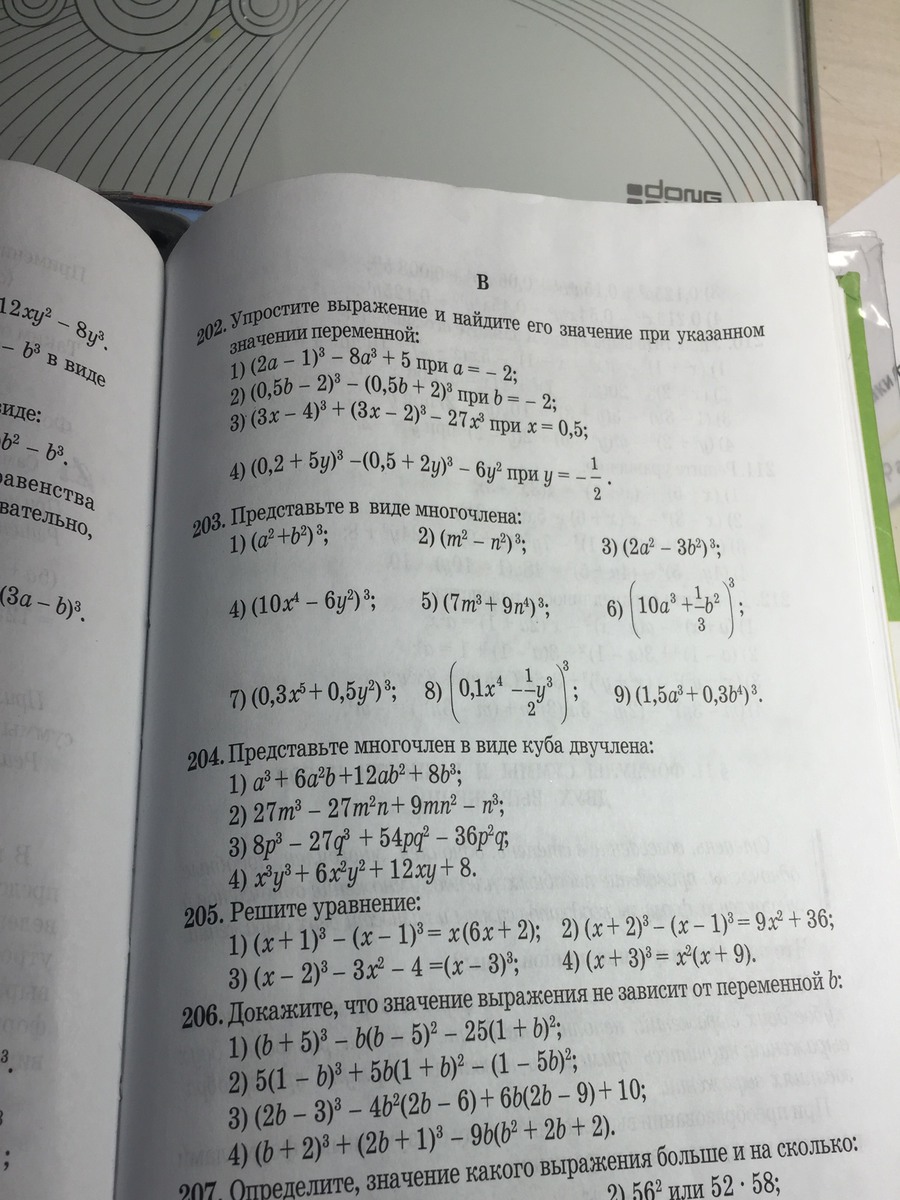 dong
12xy² – 8y³.
– b³ в виде
виде:
b² – b³.
равенства
вательно,
(3a – b)³.
В
202. Упростите выражение и найдите его значение при указанном
значении переменной:
1) (2a – 1)³ – 8a³ + 5 при a = – 2;
2) (0,5b – 2)³ – (0,5b + 2)³ при b = – 2;
3) (3x – 4)³ + (3x – 2)³ – 27x³ при x = 0,5;
4) (0,2 + 5y)³ –(0,5 + 2y)³ – 6y² при y = –1/2.
203. Представьте в виде многочлена:
1) (a² +b²)³; 2) (m² – n²)³; 3) (2a² – 3b²)³;
4) (10x⁴ – 6y²)³; 5) (7m³ + 9n⁴)³; 6) (10a³ + 1/3 b²)³;
7) (0,3x⁵ + 0,5y²)³; 8) (0,1x⁴ – 1/2 y³)³; 9) (1,5a³ + 0,3b⁴)³.
204. Представьте многочлен в виде куба двучлена:
1) a³ + 6a²b +12ab² + 8b³;
2) 27m³ – 27m²n + 9mn² – n³;
3) 8p³ – 27q³ + 54pq² – 36p²q;
4) x³y³ + 6x²y² + 12xy + 8.
205. Решите уравнение:
1) (x + 1)³ – (x – 1)³ = x(6x + 2); 2) (x + 2)³ – (x – 1)³ = 9x² + 36;
3) (x – 2)³ – 3x² – 4 =(x – 3)³; 4) (x + 3)³ = x²(x + 9).
206. Докажите, что значение выражения не зависит от переменной b:
1) (b + 5)³ – b(b – 5)² – 25(1 + b)²;
2) 5(1 – b)³ + 5b(1 + b)² – (1 – 5b)²;
3) (2b – 3)³ – 4b²(2b – 6) + 6b(2b – 9) + 10;
4) (b + 2)³ + (2b + 1)³ – 9b(b² + 2b + 2).
207. Определите, значение какого выражения больше и на сколько:
2) 56² или 52 · 58;